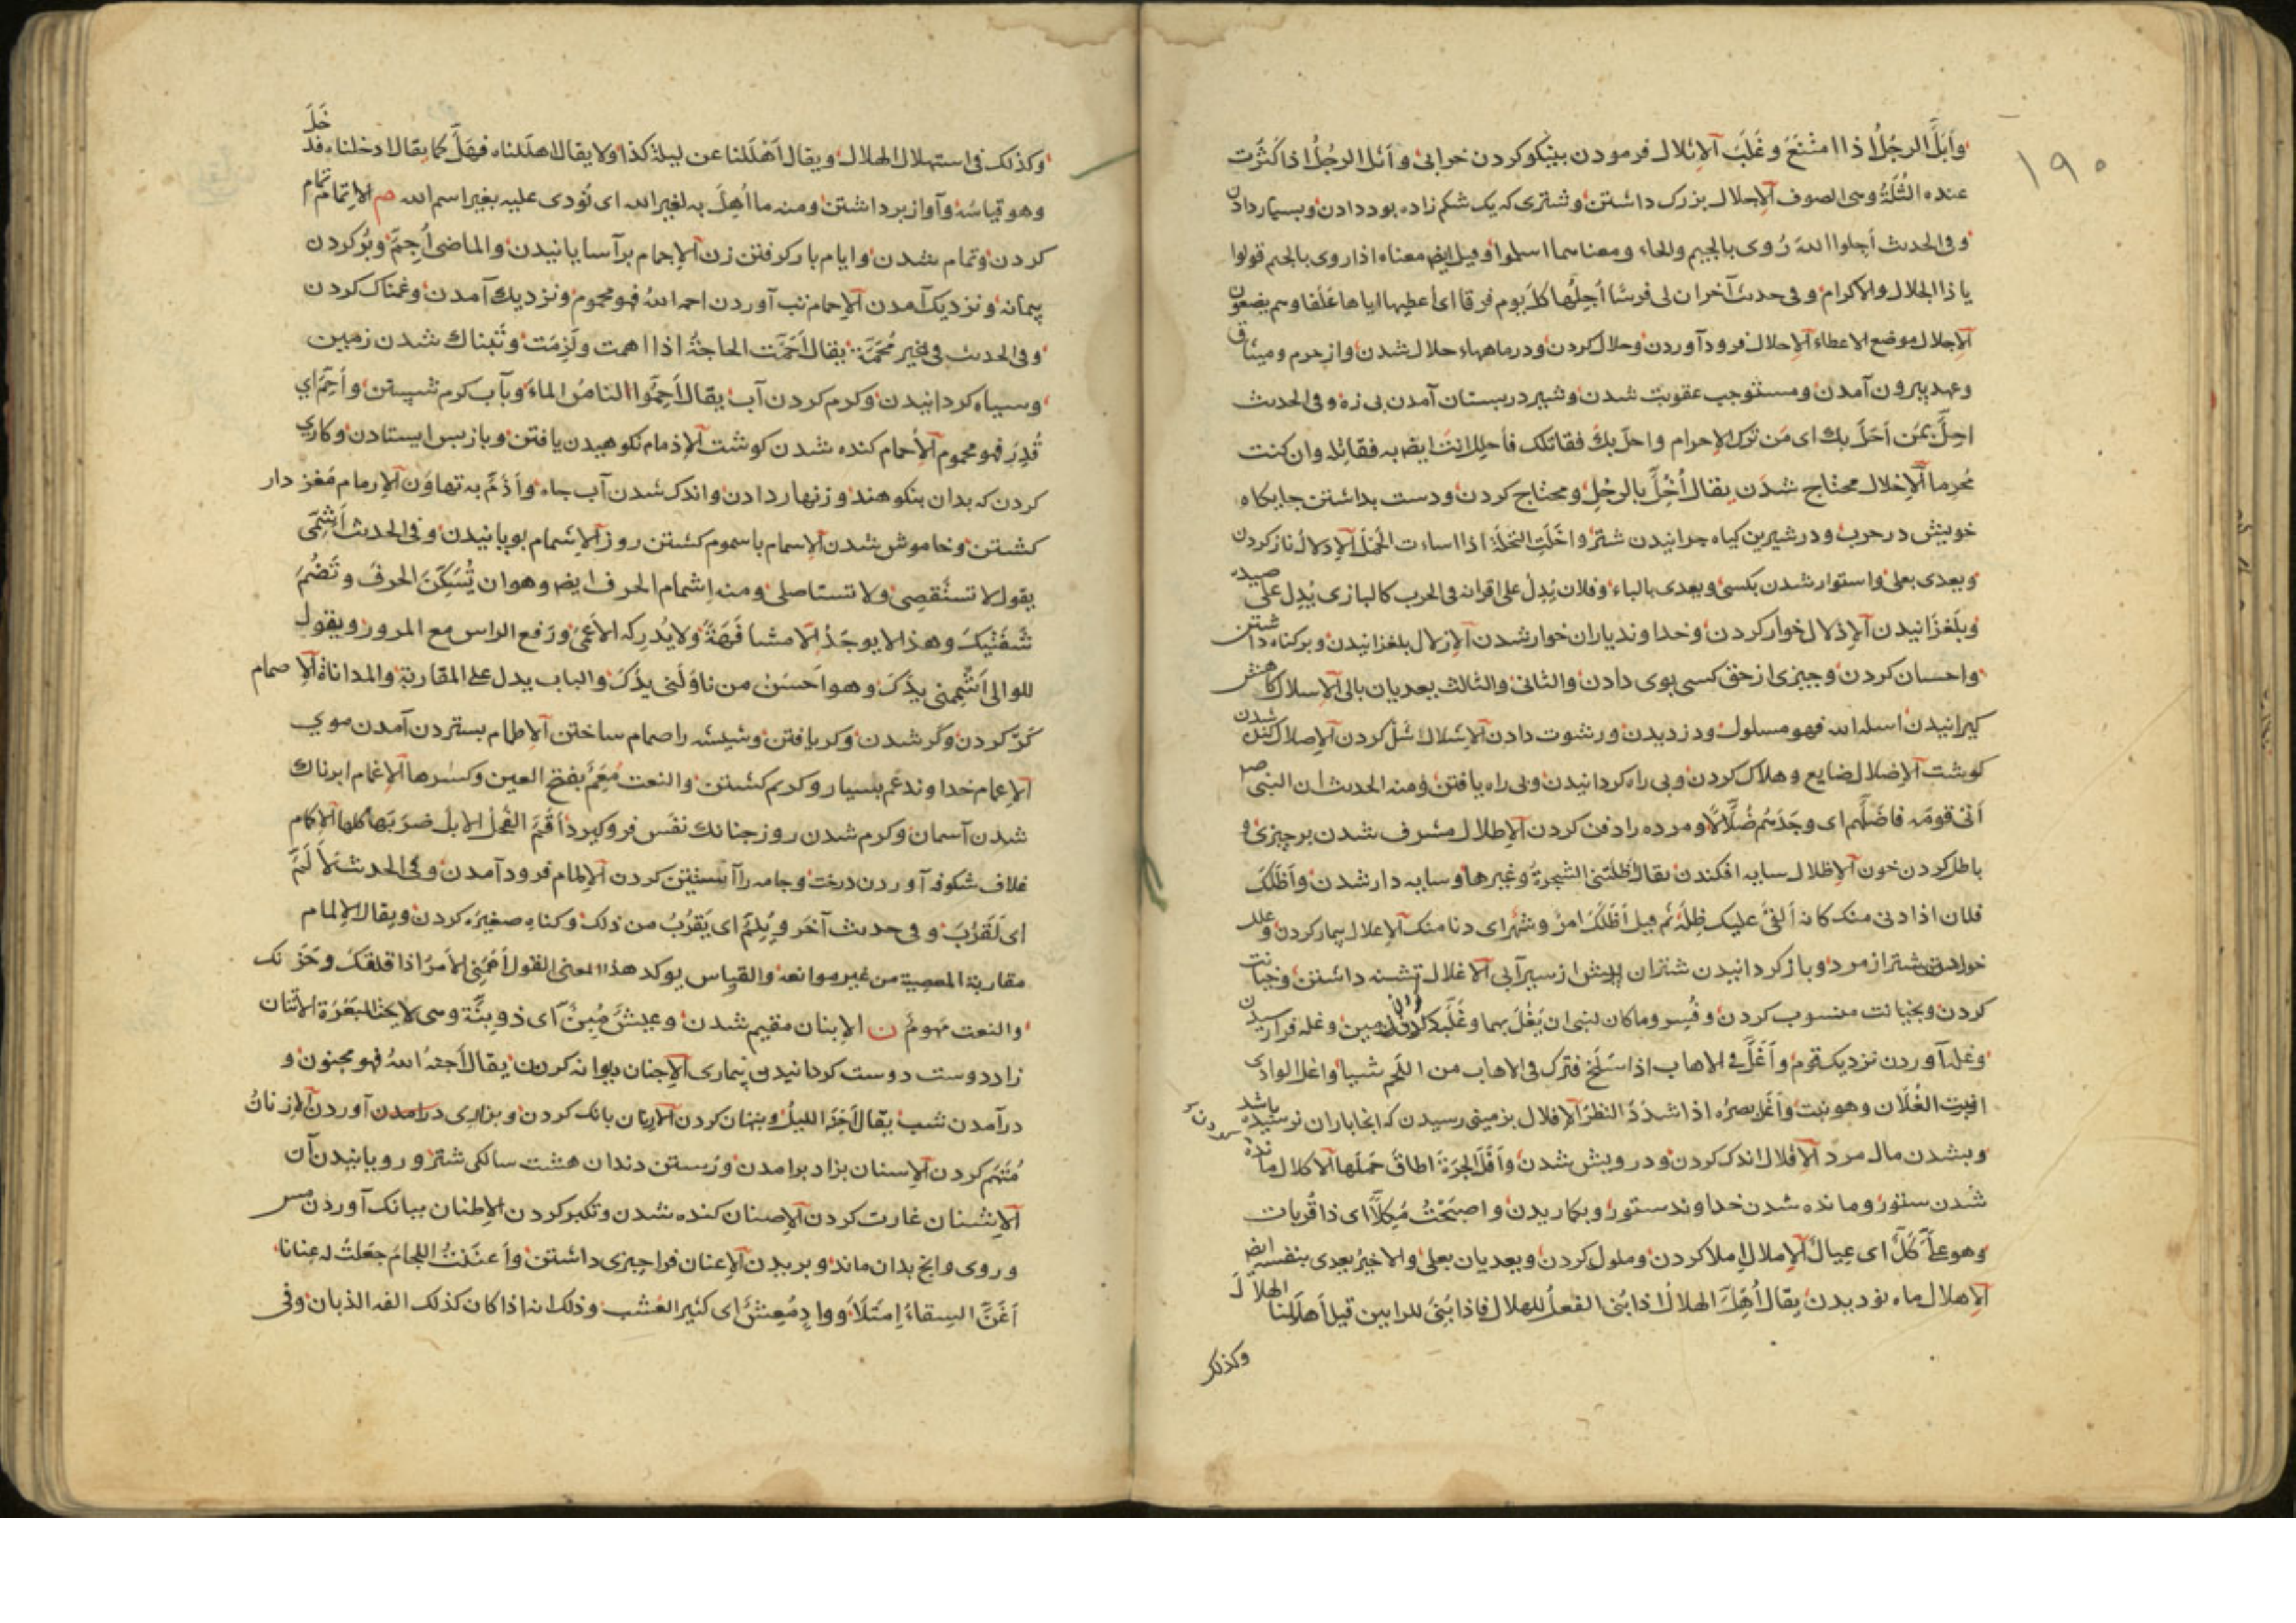 ١٩٠
وأبلّ الرجلُ اذا امتنع وغلب الإثلال فرمودن بنيكو كردن خرابى وأثل الرجلُ اذا كثرت
عنده الثلّة وهى الصوف الإجلال بزرك داشتن وشترى كه يك شكم زاده بود دادن وبسيار دادن
وفى الحديث أجلوا الله رُوى بالجيم والحاء ومعناهما اسلموا وقيل ايض معناه اذا روى بالجيم قولوا
يا ذا الجلال والاكرام وفى حديث آخر ان لى فرسًا أجلّها كلّ يوم فرقا اى أعطيها اياها علفا وهم يضعون
الإجلال موضع الاعطاء الإحلال فرود آوردن وحلال كردن ودر ماههاء حلال شدن واز حرم وميثاق
وعهد بيرون آمدن ومستوجب عقوبت شدن وشير در پستان آمدن بى زه وفى الحديث
احلّ بمن أحلّ بك اى من ترك الإحرام واحلّ بك فقاتلك فأحلل انت ايض به فقاتله وان كنت
مُحرما الإخلال محتاج شدن يقال أُخِلَّ بالرجُلِ ومحتاج كردن ودست بداشتن جايكاه
خويش در حرب ودر شيرين كياه چرانيدن شتر واخلّت النخلة اذا اساءت الحمل الإدلال ناز كردن
ويعدى بعلى واستوار شدن بكسى ويعدى بالباء وفلان يُدِلّ على اقرانه فى الحرب كالبازى يُدِل على صيده
وبلغزانيدن الإذلال خوار كردن وخداوند ياران خوار شدن الإزلال بلغزانيدن وبر كناه داشتن
واحسان كردن وچيزى از حق كسى بوى دادن والثانى والثالث يعديان بالى الإسلال كاهش
كيرانيدن اسله الله فهو مسلول ودزديدن ورشوت دادن الإشلال شل كردن الإصلال كنده شدن
كوشت الإضلال ضايع وهلاك كردن وبى راه كردانيدن وبى راه يافتن ومنه الحديث ان النبى صم
أتى قومَه فاضلّهم اى وجدهم ضُلّالًا ومرده را دفن كردن الإطلال مشرف شدن بر چيزى و
باطل كردن خون الإظلال سايه افكندن يقال أظلتنى الشجرة وغيرها وسايه دار شدن وأظلّك
فلان اذا دنى منك كانه ألقى عليك ظلّه ثم قيل أظلّك امرٌ وشهر اى دنا منك الإعلال بيمار كردن
شتر از مرد وباز كردانيدن شتران پيش از سيرآبى الاغلال تشنه داشتن وخيانت
كردن وبخيانت منسوب كردن وفُسِر وما كان لنبى ان يُغَلّ بهما وغلّه زمين وغله فرا رسيدن
وغله آوردن نزديك قوم وأغلّ فى الاهاب اذا سلخ فترك فى الاهاب من اللحم شيئا واغل الوادى
انبت الغُلّان وهو نبت وأغل بصرُه اذا شدّد النظر الإفلال بزمينى رسيدن كه انجا باران نرسيده باشد
وبشدن مال مرد الإقلال اندك كردن ودرويش شدن وأقلّ الجرّة اطاق حملها الاكلال مانده
شدن ستور ومانده شدن خداوند ستور وبكاريدن واصبحت مُكِلًّا اى ذا قُربات
وهو علىّ كَلٌّ اى عيال الإملال إملا كردن وملول كردن ويعديان بعلى والاخير يعدى بنفسه ايض
الإهلال ماه نو ديدن يقال أُهِلّ الهلالُ اذا بُنى الفعلُ للهلال فاذا بُنى للرايين قيل أهللنا الهلال
وكذلك
وكذلك فى استهلال الهلال ويقال أهللنا عن ليلة كذا ولا يقال اهللناه فهلّ كما يقال ادخلناه فدخل
وهو قياسه وآواز برداشتن ومنه ما أهل به لغير الله اى نُودى عليه بغير اسم الله م الإتمام تمام
كردن وتمام شدن وايام بار كرفتن زن الإجمام برآسايانيدن والماضى أُجمّ وپُر كردن
پيمانه ونزديك آمدن الإحمام تب آوردن احمه الله فهو محموم ونزديك آمدن وغمناك كردن
وفى الحديث فى غير مُحمّة يقال أحمّت الحاجة اذا اهمت ولزمت وتبناك شدن زمين
وسياه كردانيدن وكرم كردن آب يقال أحمّوا لنا من الماء وبآب كرم شستن وأُحِمّ اى
قُدِر فهو محموم الأخمام كنده شدن كوشت الإذمام نكوهيدن يافتن وباز پس ايستادن وكارى
كردن كه بدان بنكوهند وزنهار دادن واندك شدن آب چاه وأذمّ به تهاون الإرمام مغز دار
كشتن وخاموش شدن الإسمام باسموم كشتن روز الإشمام بويانيدن وفى الحديث أشِمّى
يقول لا تستقصى ولا تستاصلى ومنه إشمام الحرف ايض وهو ان تُسَكِّن الحرف وتضُمّ
شفتيك وهذا لا يوجد الا مشافهةً ولا يُدركه الأعمى ورفع الراس مع المرور ويقول
للوالى أشممنى يدك وهو أحسن من ناولنى يدك والباب يدل على المقاربة والمداناة الإصمام
كرّ كردن وكر شدن وكر يافتن وشيشه را صمام ساختن الإطمام بستردن آمدن موى
الإعمام خداوند عم بسيار وكريم كشتن والنعت مُعِمّ بفتح العين وكسرها الإغمام ابرناك
شدن آسمان وكرم شدن روز چنانك نفس فرو كيرد أقمّ الفحل الابل ضربها كلها الإكمام
غلاف شكوفه آوردن درخت وجامه را آستين كردن الإلمام فرود آمدن وفى الحديث لألمّ
اى لقرب وفى حديث آخر ويُلِمّ اى يقرُب من ذلك وكناه صغيره كردن ويقال الإلمام
مقاربة المعصية من غير مواقعه والقياس يوكد هذا المعنى القول أهمّنى الأمر اذا قلقك وحزنك
والنعت مهموم ن الإبنان مقيم شدن وعيش مُبِنّ اى ذو بنّة وهى الاتنان
زاد دوست دوست كردانيدن بيمارى الإجنان ديوانه كردن يقال أجنه الله فهو مجنون و
درآمدن شب يقال أجنّه الليل وپنهان كردن الإرنان بانك كردن وبزارى درامدن آوردن الإزنان
مُتّهم كردن الإسنان بزاد برامدن ورستن دندان هشت سالكى شتر ورويانيدن آن
الإشنان غارت كردن الإصنان كنده شدن وتكبر كردن الإطنان ببانك آوردن مس
وروى وانچ بدان ماند وبريدن الإعنان فرا چيزى داشتن وأعننت اللجام جعلت له عنانا
أغنّ السقاء امتلأ ووادٍ مُغِنّ اى كثير العشب وذلك انه اذا كان كذلك الفه الذبان وفى